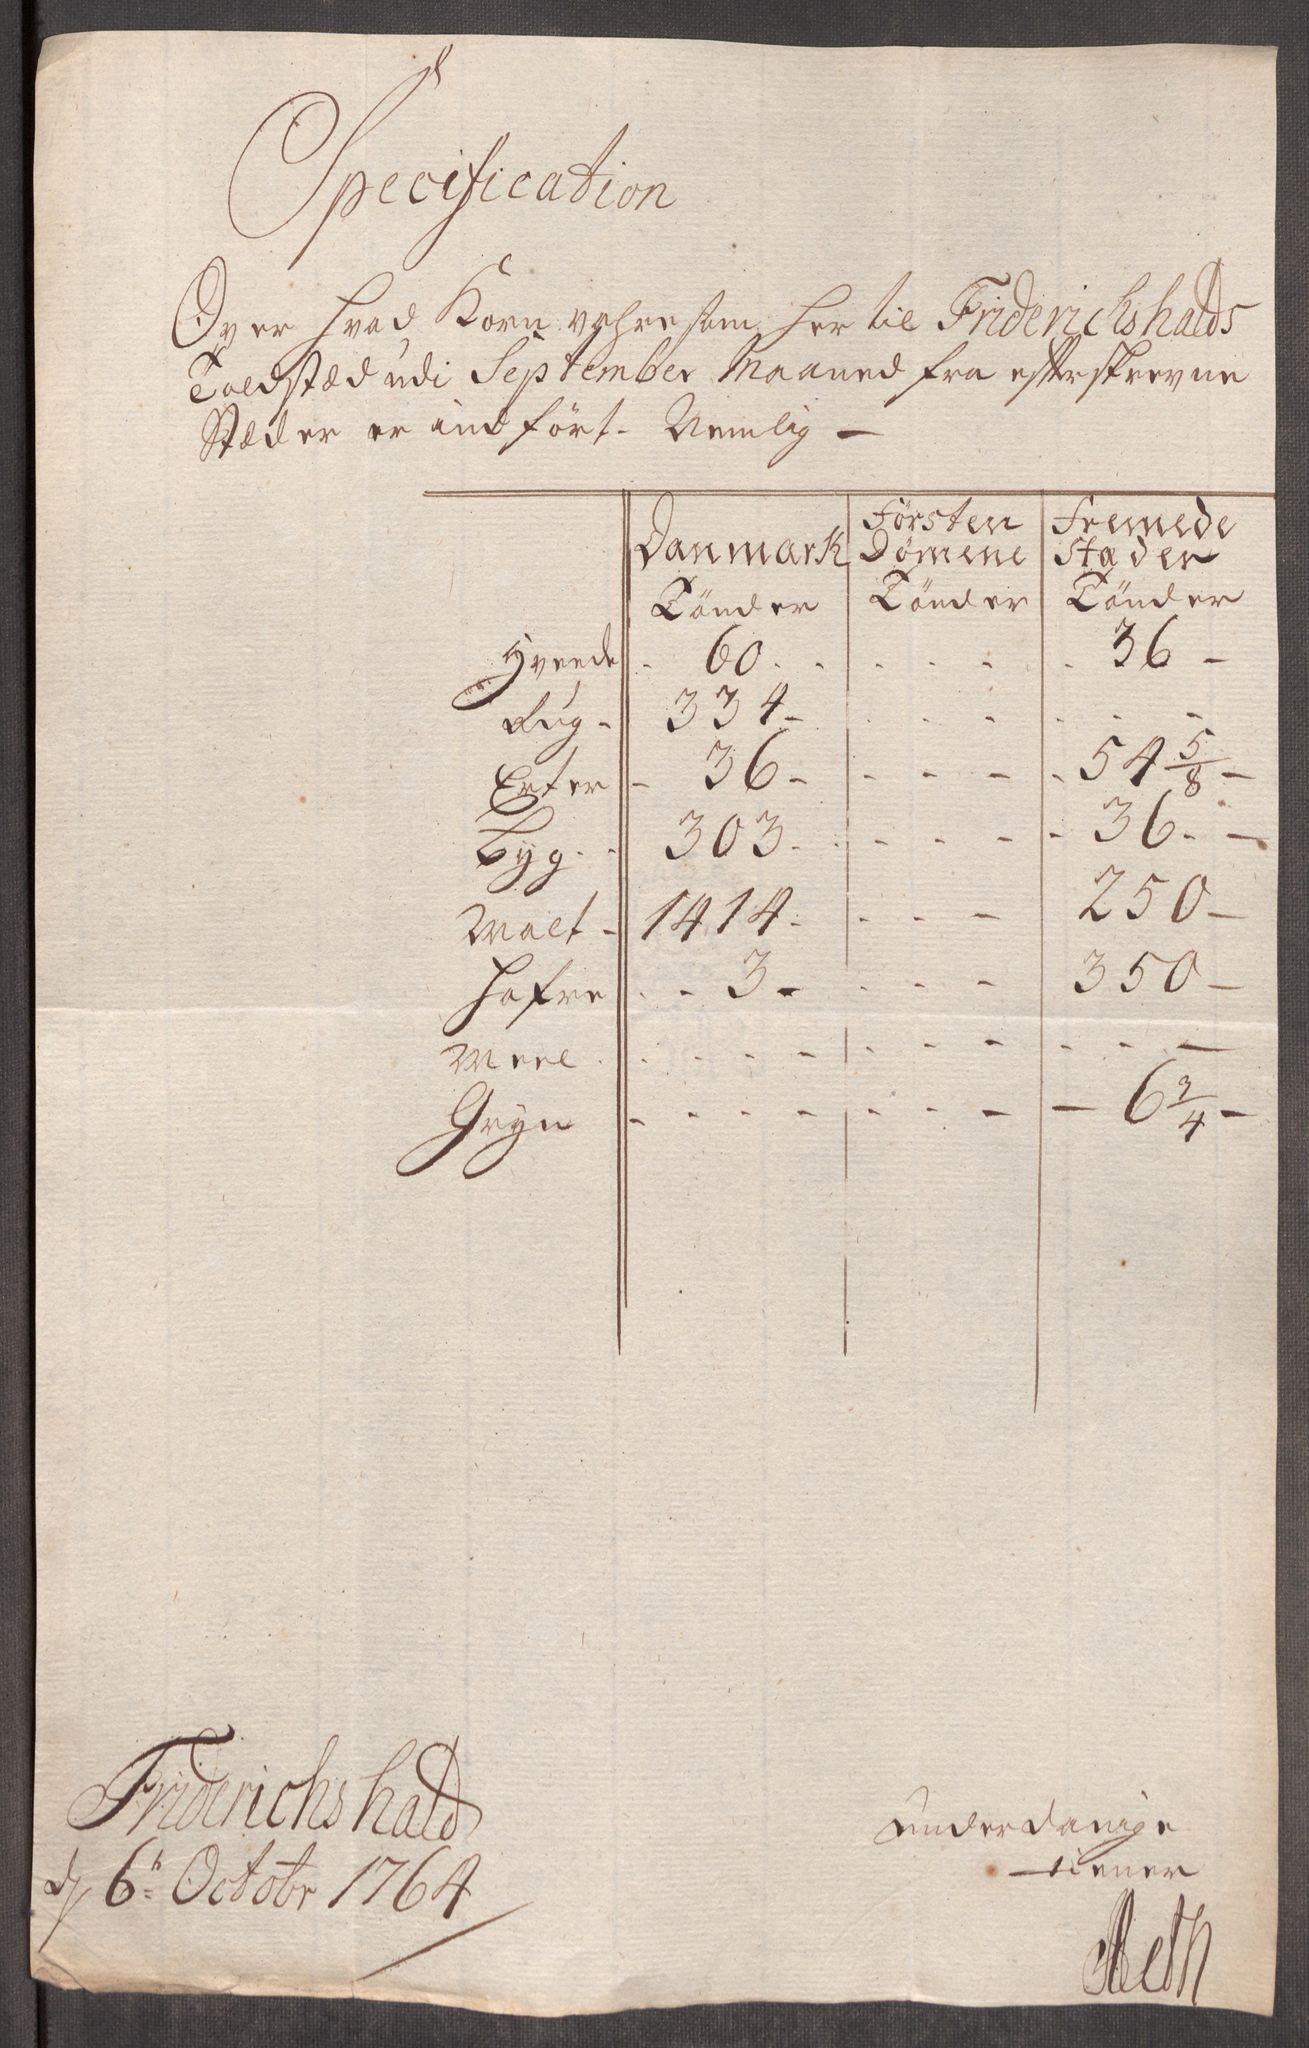 Specification
Over hvad Korn vahre som her til Friderichshalds
Toldstæd udi September Maaned fra efterskrevne
Stæder er indført. Nemlig —
Danmark Førsten Fremede
Dømene Stæder
Tönder Tönder Tönder
Hveede - 60 - - - - - 36 -
Rug - 334 - - - - - - -
Erter - 36 - - - - - 54 5/8 -
Byg - - 303 - - - - - 36 - -
Malt - 1414 - - - - 250 -
Hafre - - 3 - - - - 350 -
Meel - - - - - - - - - - -
Gryn - - - - - - - - 6 3/4 -
Friderichshald
d 6t Octobr 1764
underdanige
tiener